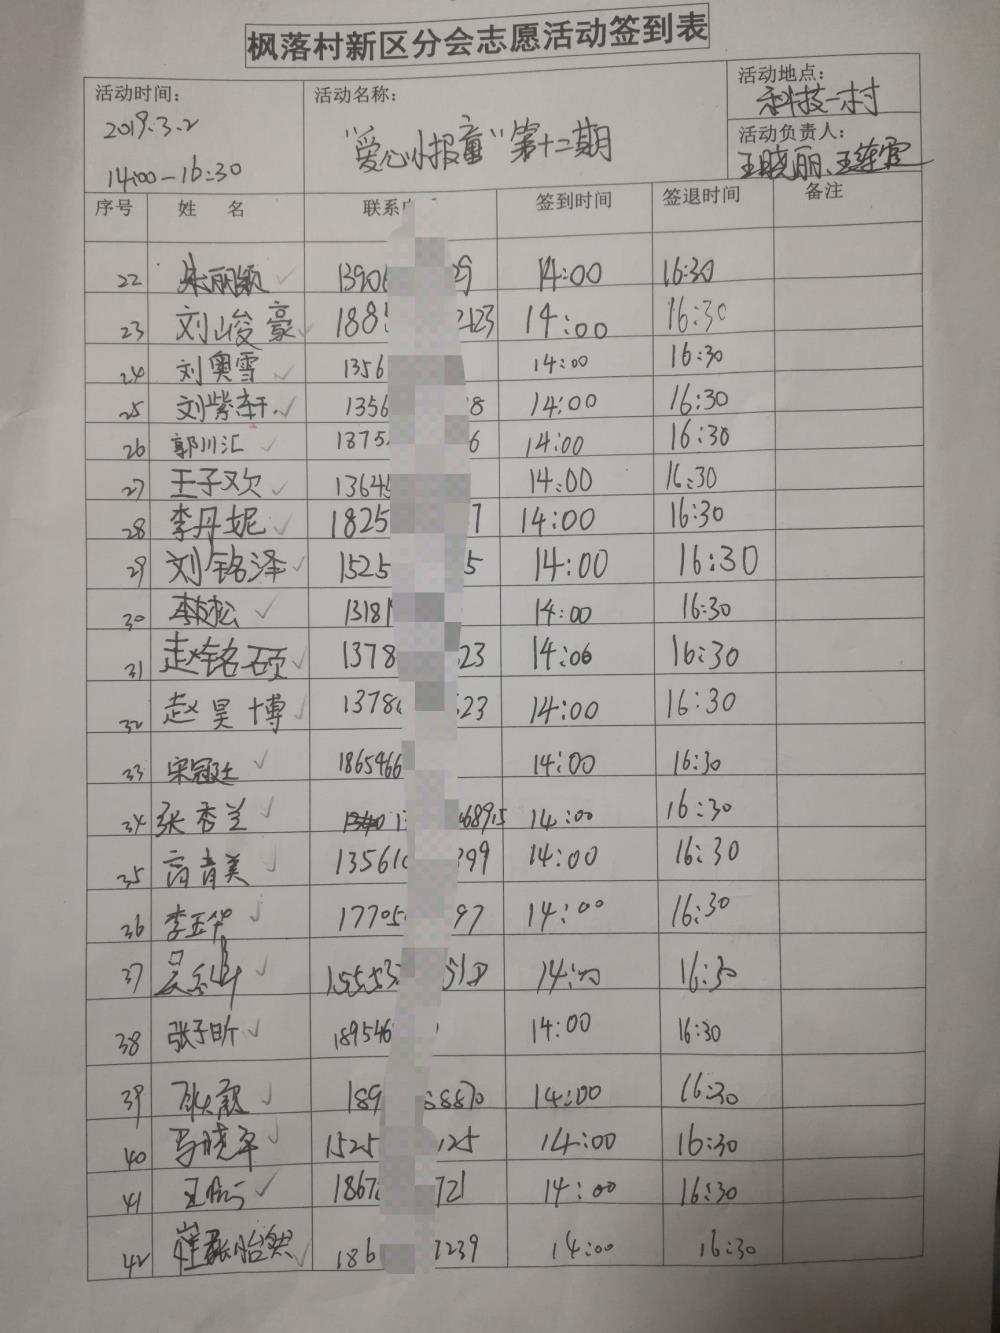 枫落村新区分会志愿活动签到表
活动时间: 2019.3.2 14:00-16:30
活动名称: "爱心小报童"第十二期
活动地点: 科技一村
活动负责人: 王晓丽、王莲霞
序号 姓 名 联系 签到时间 签退时间 备注
22 朱丽颖 13906 9 14:00 16:30
23 刘峻豪 1885 2423 14:00 16:30
24 刘奥雪 1356 14:00 16:30
25 刘紫轩 1356 8 14:00 16:30
26 郭川汇 1375 6 14:00 16:30
27 王子欢 13645 14:00 16:30
28 李丹妮 1825 7 14:00 16:30
29 刘铭泽 1525 5 14:00 16:30
30 松 1318 14:00 16:30
31 赵铭硕 1378 23 14:06 16:30
32 赵昊博 1378 23 14:00 16:30
33 宋冠廷 1865466 14:00 16:30
34 张秀兰 68915 14:00 16:30
35 高青美 13561 399 14:00 16:30
36 李玉华 17705 97 14:00 16:30
37 吴 15553 518 14:00 16:30
38 张子昕 189546 14:00 16:30
39 189 88870 14:00 16:30
40 马晓平 1525 125 14:00 16:30
41 王 1867 721 14:00 16:30
42 崔张怡然 186 7239 14:00 16:30